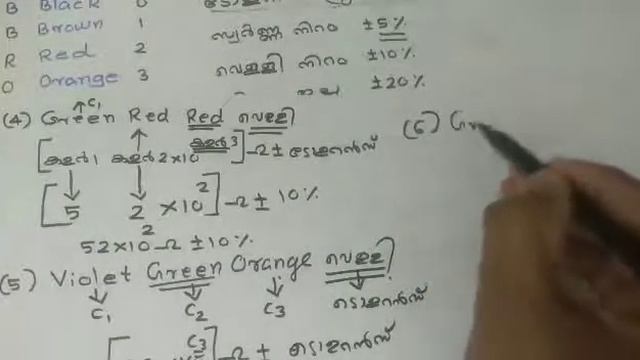 B Black 0
B Brown 1 സ്വർണ്ണ നിറം ±5%
R Red 2 വെള്ളി നിറം ±10%
O Orange 3 ±20%
↑C1
(4) Green Red Red വെള്ളി
[കളർ1 കളർ2×10 കളർ3] Ω ± ടോളറൻസ്
[5 2 ×10 2] Ω ± 10%
52×10 2 Ω ±10%
(5) Violet Green Orange വെള്ളി
C1 C2 C3 ടോളറൻസ്
C3] Ω ± ടോളറൻസ്
(6) Gr